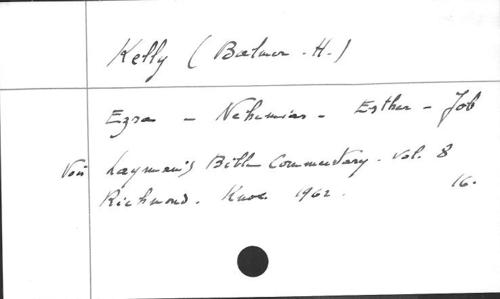 Kelly (Balmer. H.)
Ezra - Nehemias - Esther - Job
Voir Laymen's Bible Commentary. Vol. 8
Richmond. Knox. 1962. 16.